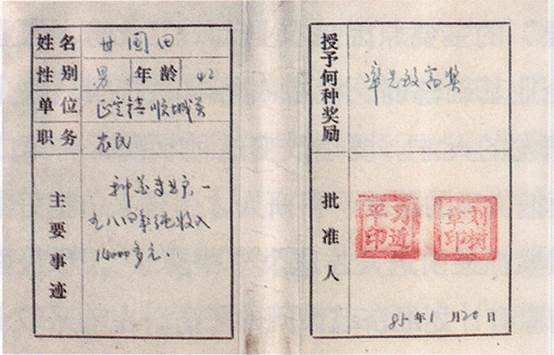 姓名 国田
性别 男 年龄 42
单位 正定镇顺城关
职务 农民
主要事迹
种 专业户.一
九八四年纯收入
14000多元.
授予何种奖励
率先致富奖
批准人
习近平印
刘树章印
85年1月20日